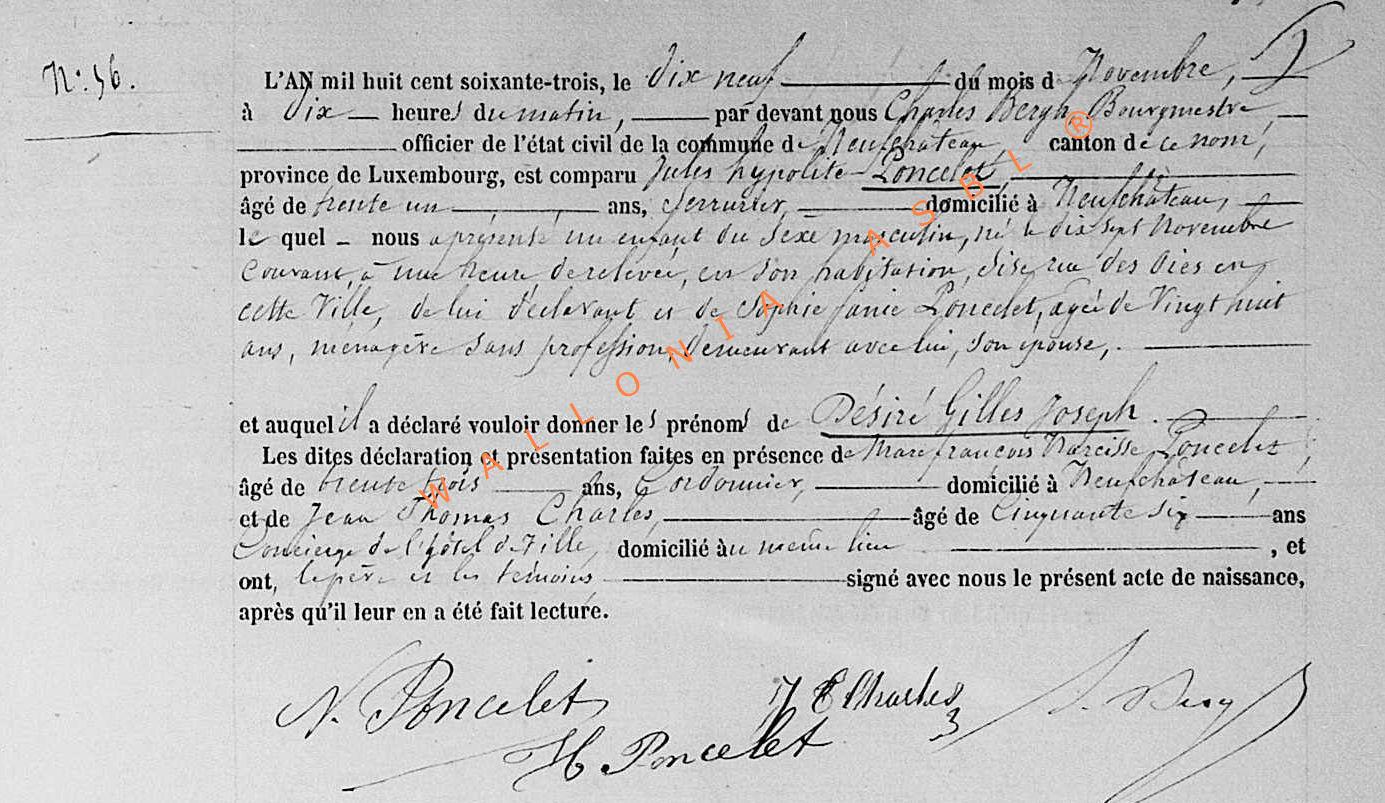 N: 56.
L'AN mil huit cent soixante-trois, le dix neuf du mois de Novembre,
à dix heures du matin, par devant nous Charles Bergh, Bourgmestre,
officier de l'état civil de la commune de Neufchateau, canton de ce nom,
province de Luxembourg, est comparu Jules hypolite Poncelet,
âgé de trente un ans, Serrurier, domicilié à Neufchâteau,
le quel nous a présenté un enfant du sexe masculin, né le dix sept Novembre
Courant, à une heure de relevée, en son habitation, sise rue des en
cette Ville, de lui déclarant et de Sophie fanie Poncelet, agée de Vingt huit
ans, ménagère sans profession, demeurant avec lui, son épouse,
et auquel il a déclaré vouloir donner les prénoms de Désiré Gilles Joseph.
Les dites déclaration et présentation faites en présence de Marc françois Narcisse Poncelet,
âgé de trente trois ans, Cordonnier, domicilié à Neufchâteau,
et de Jean Thomas Charles, âgé de Cinquante six ans
Concierge de l'hôtel de Ville, domicilié au même lieu, et
ont, le père et les témoins signé avec nous le présent acte de naissance,
après qu'il leur en a été fait lecture.
N. Poncelet J. Charles
H Poncelet
WALLONIA ASBL ®